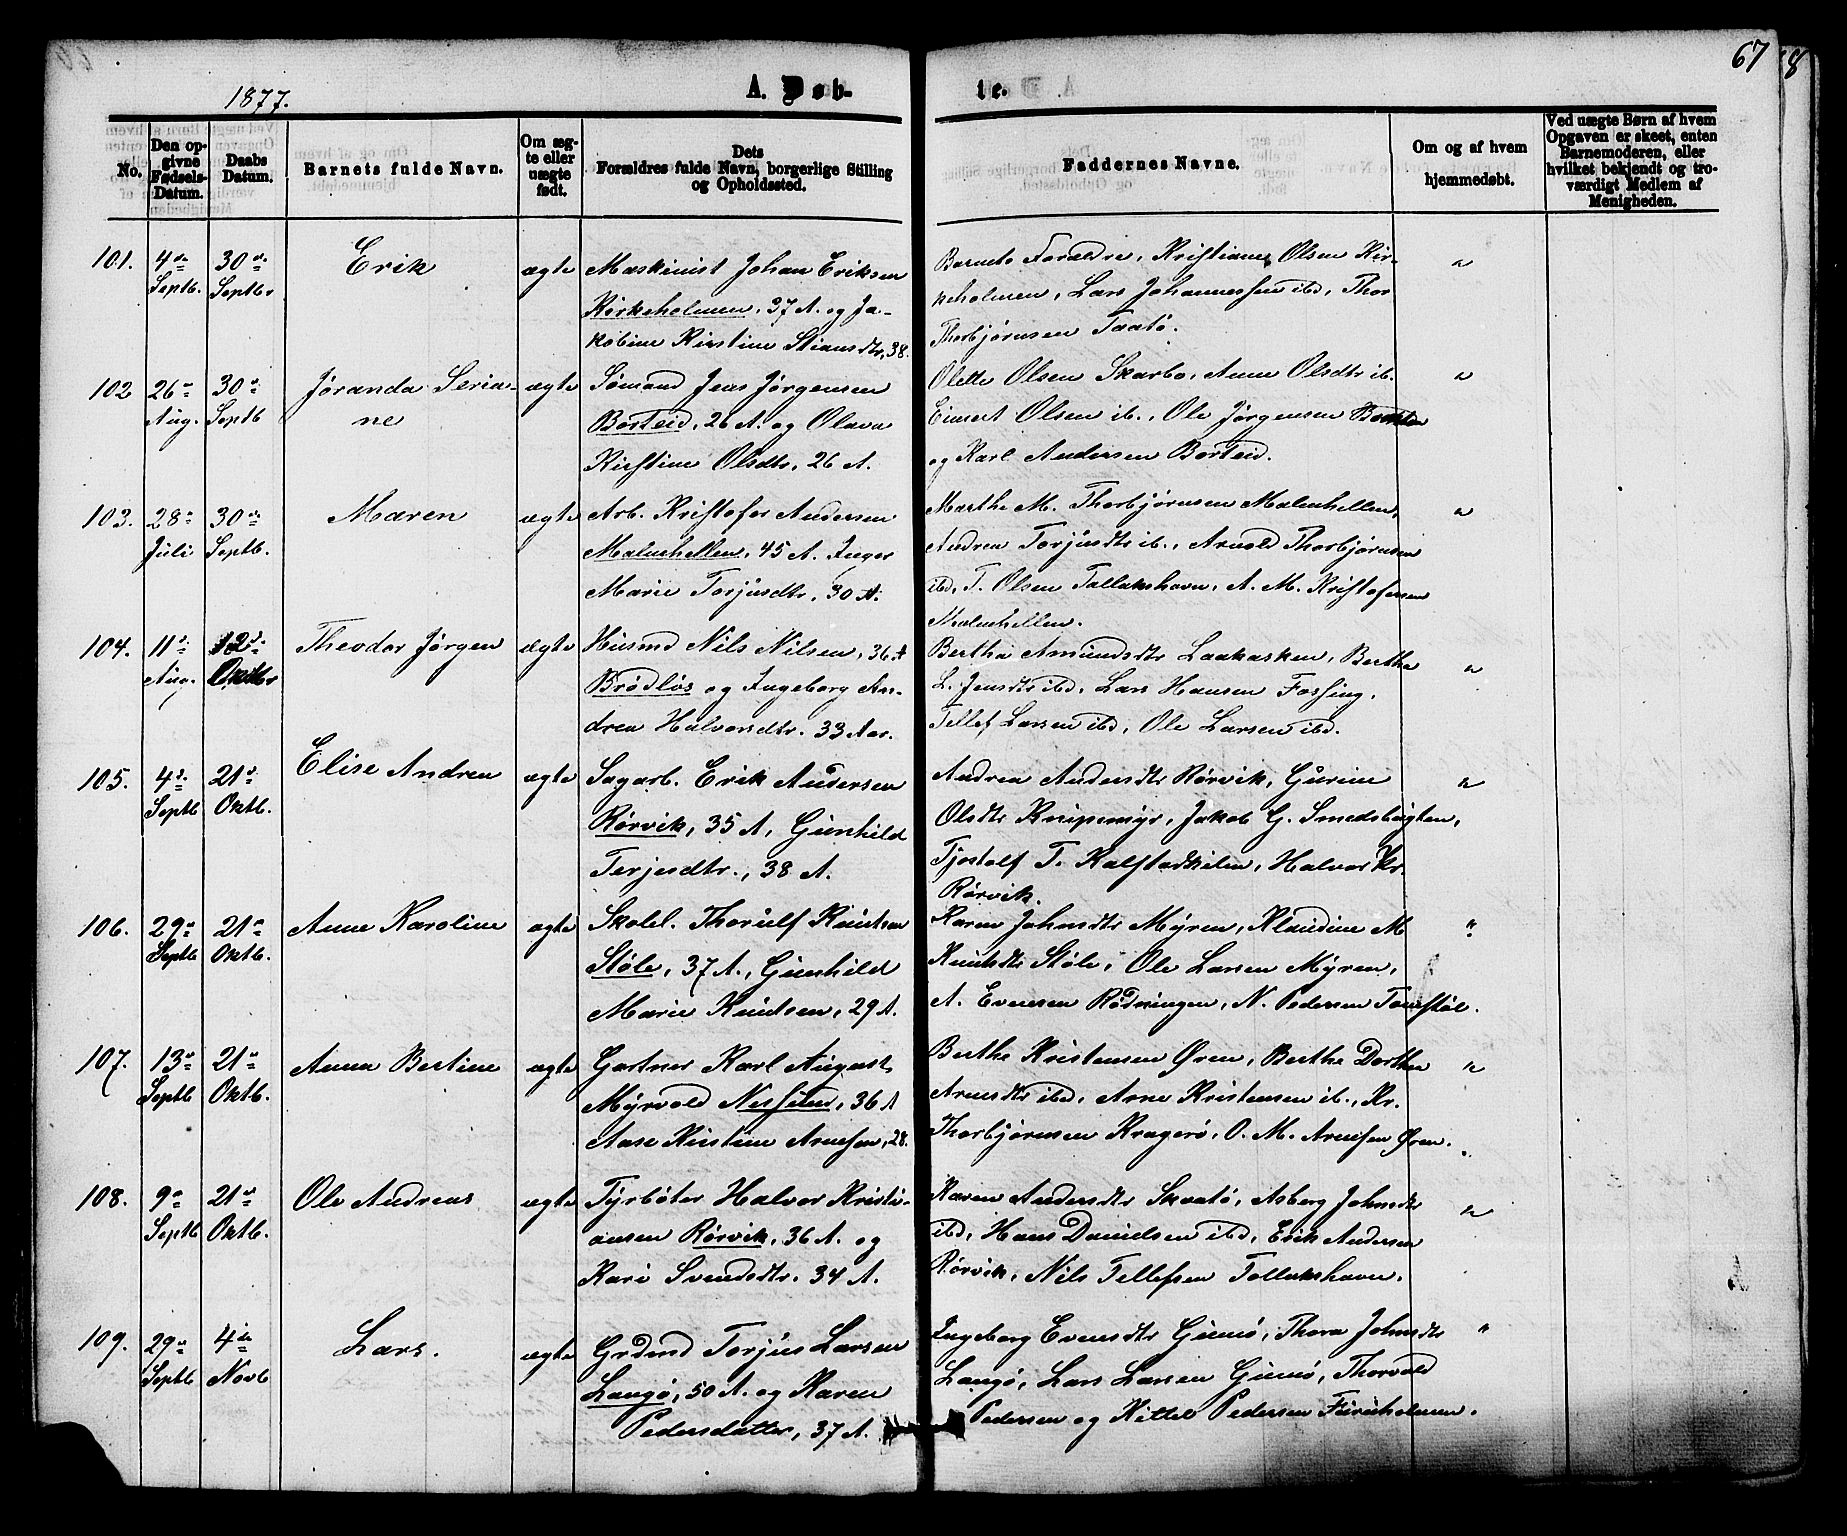 67
8
1877.
A. Døb-
te.
No.
Den opgivne Fødsels-Datum.
Daabs Datum.
Barnets fulde Navn.
Om ægte eller uægte født.
Dets Forældres fulde Navn, borgerlige Stilling og Opholdssted.
Faddernes Navne.
Om og af hvem hjemmedøbt.
Ved uægte Børn af hvem Opgaven er skeet, enten Barnemoderen, eller hvilket bekjendt og troværdigt Medlem af Menigheden.
101. 4de Septb. 30de Septbr Erik ægte Maskinist Johan Eriksen
Kirkeholmen, 37 A. og Ja-
kobine Kirstine Stiansdtr, 38.
Barnets Forældre, Kristiane Olsen Kir-
keholmen, Lars Johannessen ibd, Thor
Thorbjørnsen Taatø.
102 26de Aug. 30de Septb Jøranda Seria-
ne
ægte Sømand Jens Jørgensen
Borteid, 26 A. og Olava
Kirstine Olsdtr, 26 A.
Olette Olsen Skarbo, Anne Olsdtr ib.
Einert Olsen ib., Ole Jørgensen
og Karl Andersen Borteid.
103. 28de Juli 30de Septb. Maren ægte Arb. Kristofer Andersen
Malmhellen, 45 A. Inger
Marie Torjusdtr, 30 A.
Marthe M. Thorbjørnsen Malmhellen,
Andrea Torjusdtr ib., Arnold Thorbjørnsen
ibd, T. Olsen Tallakshavn, A. M. Kristofersen
Malmhellen.
104. 11te Aug. Oktbr Theodor Jørgen ægte Husmd Nils Nilsen, 36 A
Brødløs og Ingeborg An-
drea Halvorsdtr. 33 Aar.
Berthe Amundsdtr Laakasken, Berthe
L. Jensdtr ibd, Lars Hansen Fossing,
Tellef Larsen ibd, Ole Larsen ibd.
105. 4de Septb 21de Oktb. Elise Andrea ægte Sagarb. Erik Andersen
Rørvik, 35 A, Gunhild
Terjesdtr., 38 A.
Andrea Andersdtr Rørvik, Gurine
Olsdtr Knipemyr, Jakob G. Smedsbugten,
Tjostolf T. Kalstadkilen, Halvor Kr.
Rørvik.
106. 29de Septb 21de Oktb. Anne Karoline ægte Skolel. Thorulf Knutsen
Støle, 37 A., Gunhild
Marie Knutsen, 29 A.
Karen Johnsdtr Myren, Klaudine M
Knutsdtr Støle, Ole Larsen Myren,
A. Evensen Rødningen, N. Pedersen
107. 13de Septb 21de Oktb. Anna Bertine ægte Gartner Karl August
Myrvold, 36 A
Aase Kirstine Arnesen, 28.
Berthe Kristensen Øren, Berthe Dorthea
Arnesdtr ibd, Arne Kristensen ib., Kr.
Thorbjørnsen Kragerø, O. M. Arnesen Øren.
108. 9de Septb 21de Oktb. Ole Andreas ægte Fyrbøter Halvor Kristi-
ansen Rørvik, 36 A. og
Kari Svendsdtr. 34 A.
Karen Andersdtr Skaatø, Asberg Johnsdtr
ibd, Hans Danielsen ibd, Erik Andersen
Rørvik, Nils Tellefsen Tallakshavn.
109. 29de Septb 4de Novb Lars. ægte Grdmd Torjus Larsen
Langø, 50 A. og Karen
Pedersdatter, 37 A.
Ingeborg Evensdtr Gumø, Thora Johnsdtr
Langø, Lars Larsen Gumø, Thorvald
Pedersen og Kittel Pedersen Furuholmen.